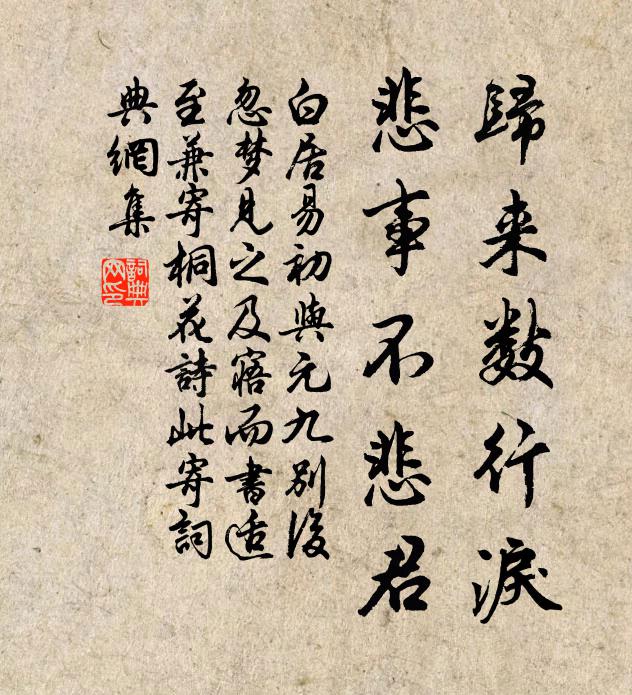 歸来數行淚
悲事不悲君
白居易初與元九別後
忽梦見之及寤而書适
至兼寄桐花詩此寄詞
典網集
詞典
网印